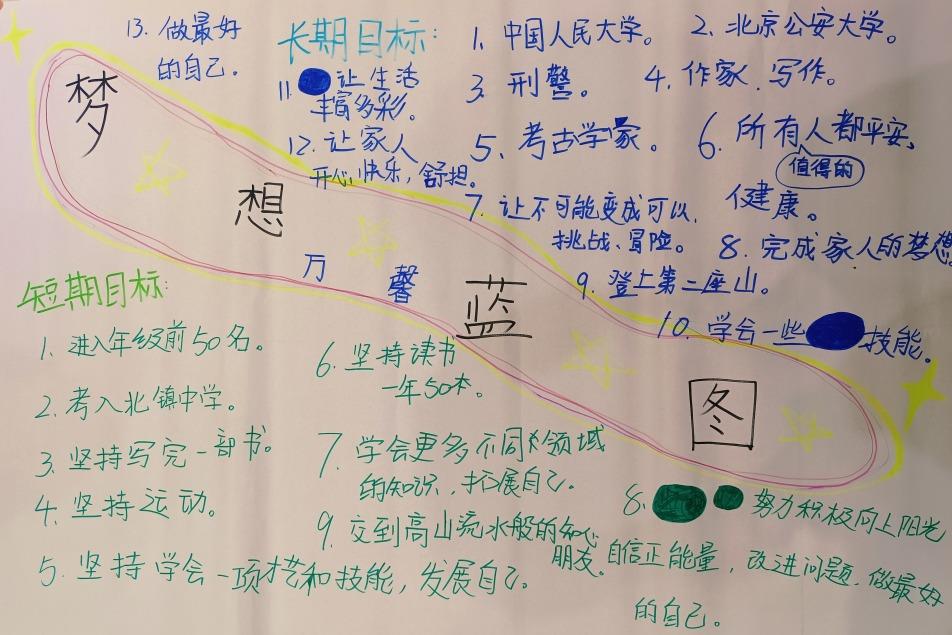 梦想蓝图
万馨
长期目标:
1. 中国人民大学。
2. 北京公安大学。
3. 刑警。
4. 作家.写作。
5. 考古学家。
6. 所有人都平安、
值得的
健康。
7. 让不可能变成可以.
挑战、冒险。
8. 完成家人的梦想
9. 登上第二座山。
10. 学会一些技能。
11. 让生活
丰富多彩。
12. 让家人
开心,快乐,舒担。
13. 做最好
的自己。
短期目标:
1. 进入年级前50名。
2. 考入北镇中学。
3. 坚持写完一部书。
4. 坚持运动。
5. 坚持学会一项才艺和技能,发展自己。
6. 坚持读书
一年50本。
7. 学会更多不同领域
的知识.拓展自己。
8. 努力积极向上阳光
自信正能量,改进问题.做最好
的自己。
9. 交到高山流水般的知心
朋友。